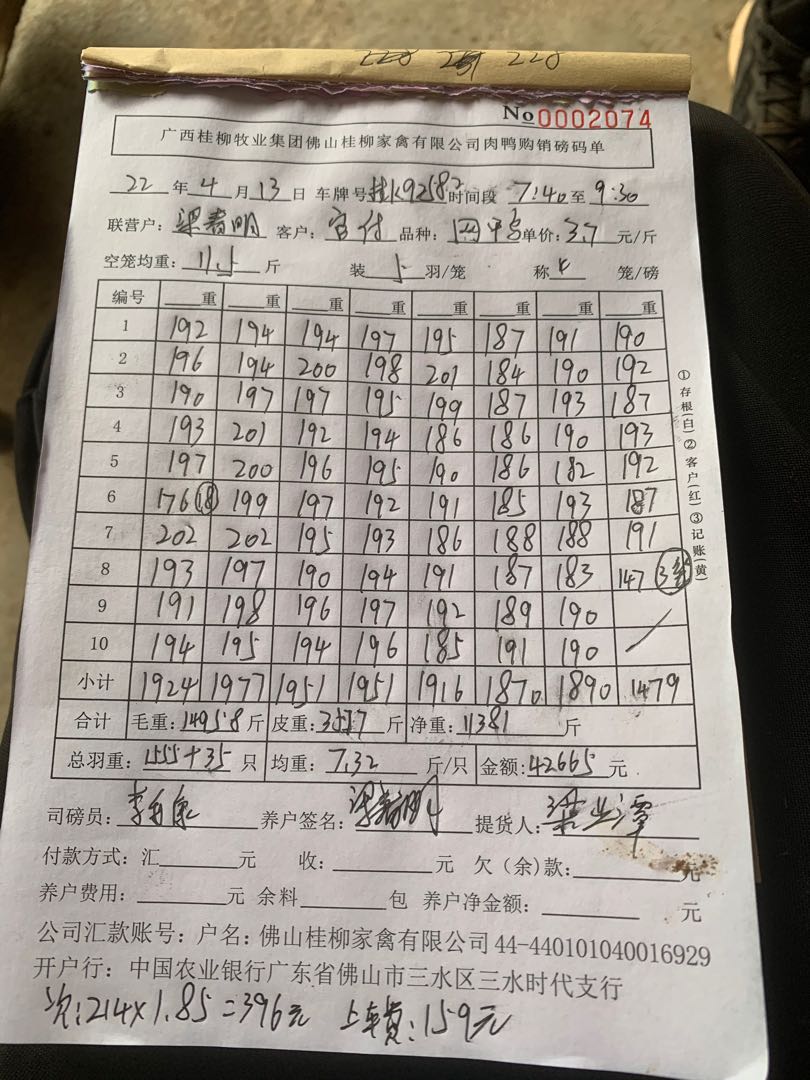 228 231 228
No 0002074
广西桂柳牧业集团佛山桂柳家禽有限公司肉鸭购销磅码单
22 年 4 月 13 日 车牌号 桂K92582 时间段 7:40 至 9:30
联营户: 梁春明 客户: 官付 品种: 网平鸟 单价: 3.7 元/斤
空笼均重: 11.5 斤 装 5 羽/笼 称 4 笼/磅
编号 重 重 重 重 重 重 重 重
1 192 194 194 197 195 187 191 190
2 196 194 200 198 201 184 190 192
3 190 197 197 195 199 187 193 187
4 193 201 192 194 186 186 190 193
5 197 200 196 195 190 186 182 192
6 176 18 199 197 192 191 185 193 187
7 202 202 195 193 186 188 188 191
8 193 197 190 194 191 187 183 147 3笼
9 191 198 196 197 192 189 190
10 194 195 194 196 185 191 190
小计 1924 1977 1951 1951 1916 1870 1890 1479
合计 毛重: 14958 斤 皮重: 3577 斤 净重: 11381 斤
总羽重: 1555+35 只 均重: 7.32 斤/只 金额: 42665 元
司磅员: 养户签名: 梁春明 提货人:
付款方式: 汇 元 收: 元 欠(余)款: 元
养户费用: 元 余料 包 养户净金额: 元
公司汇款账号: 户名: 佛山桂柳家禽有限公司 44-440101040016929
开户行: 中国农业银行广东省佛山市三水区三水时代支行
次: 214×1.85=396元 上车费: 159元
①存根(白)②客户(红)③记账(黄)